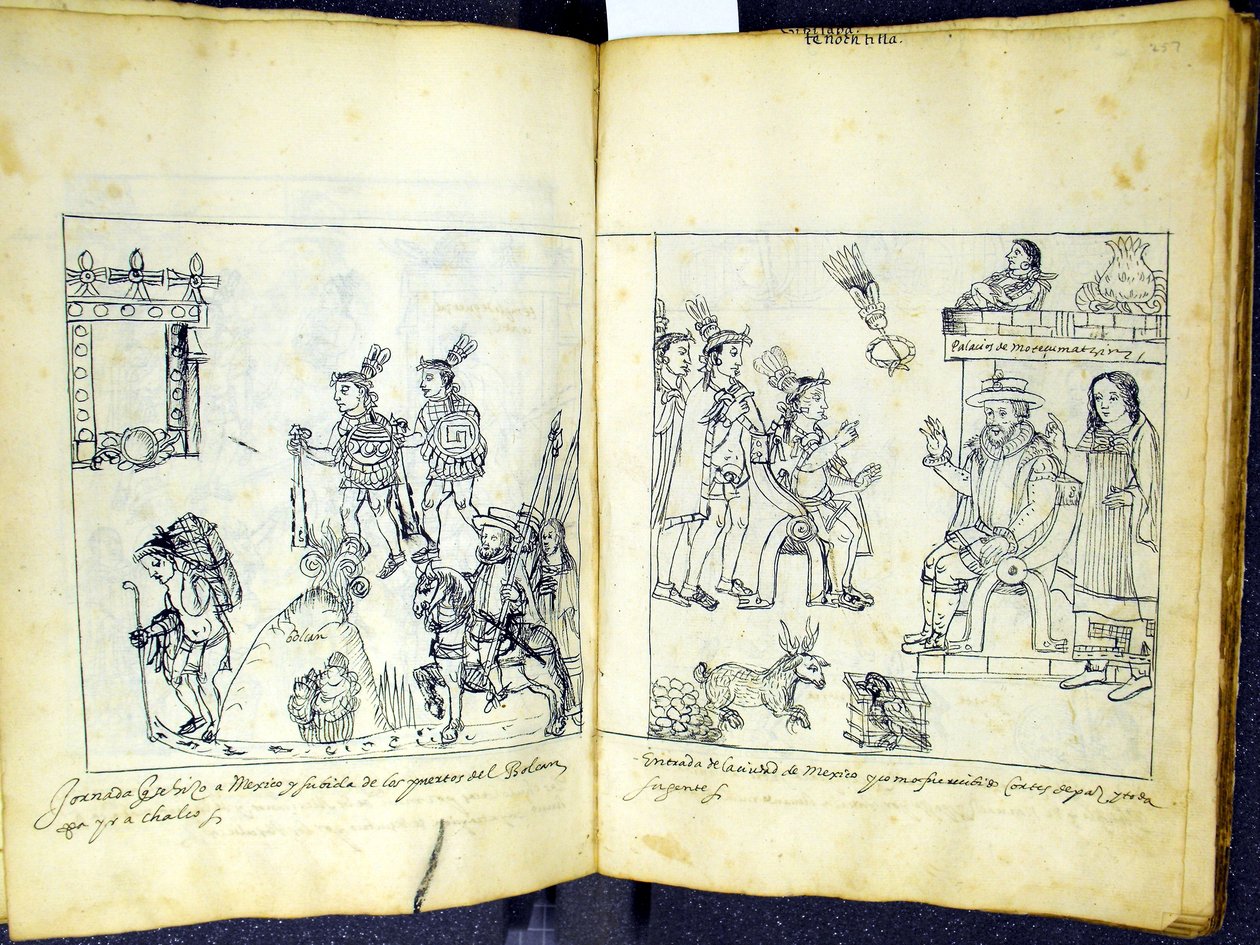 Bolcan
Jornada q̃ se hizo a Mexico y subida de los puertos del Bolcan
pa yr a chalco
tenochtitla.
257
Palacios de motecumatzin
Entrada de la ciudad de Mexico y como fue recibido Cortes de paz y toda
su gente